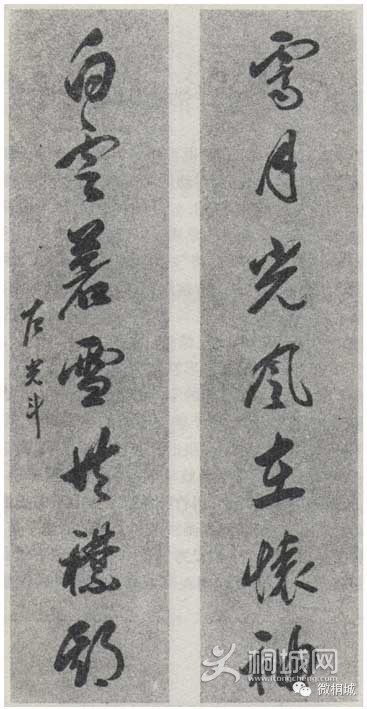 霽月光風在懷袖
白雲蒼雪共襟期
左光斗
桐城网
itongcheng.com
微桐城